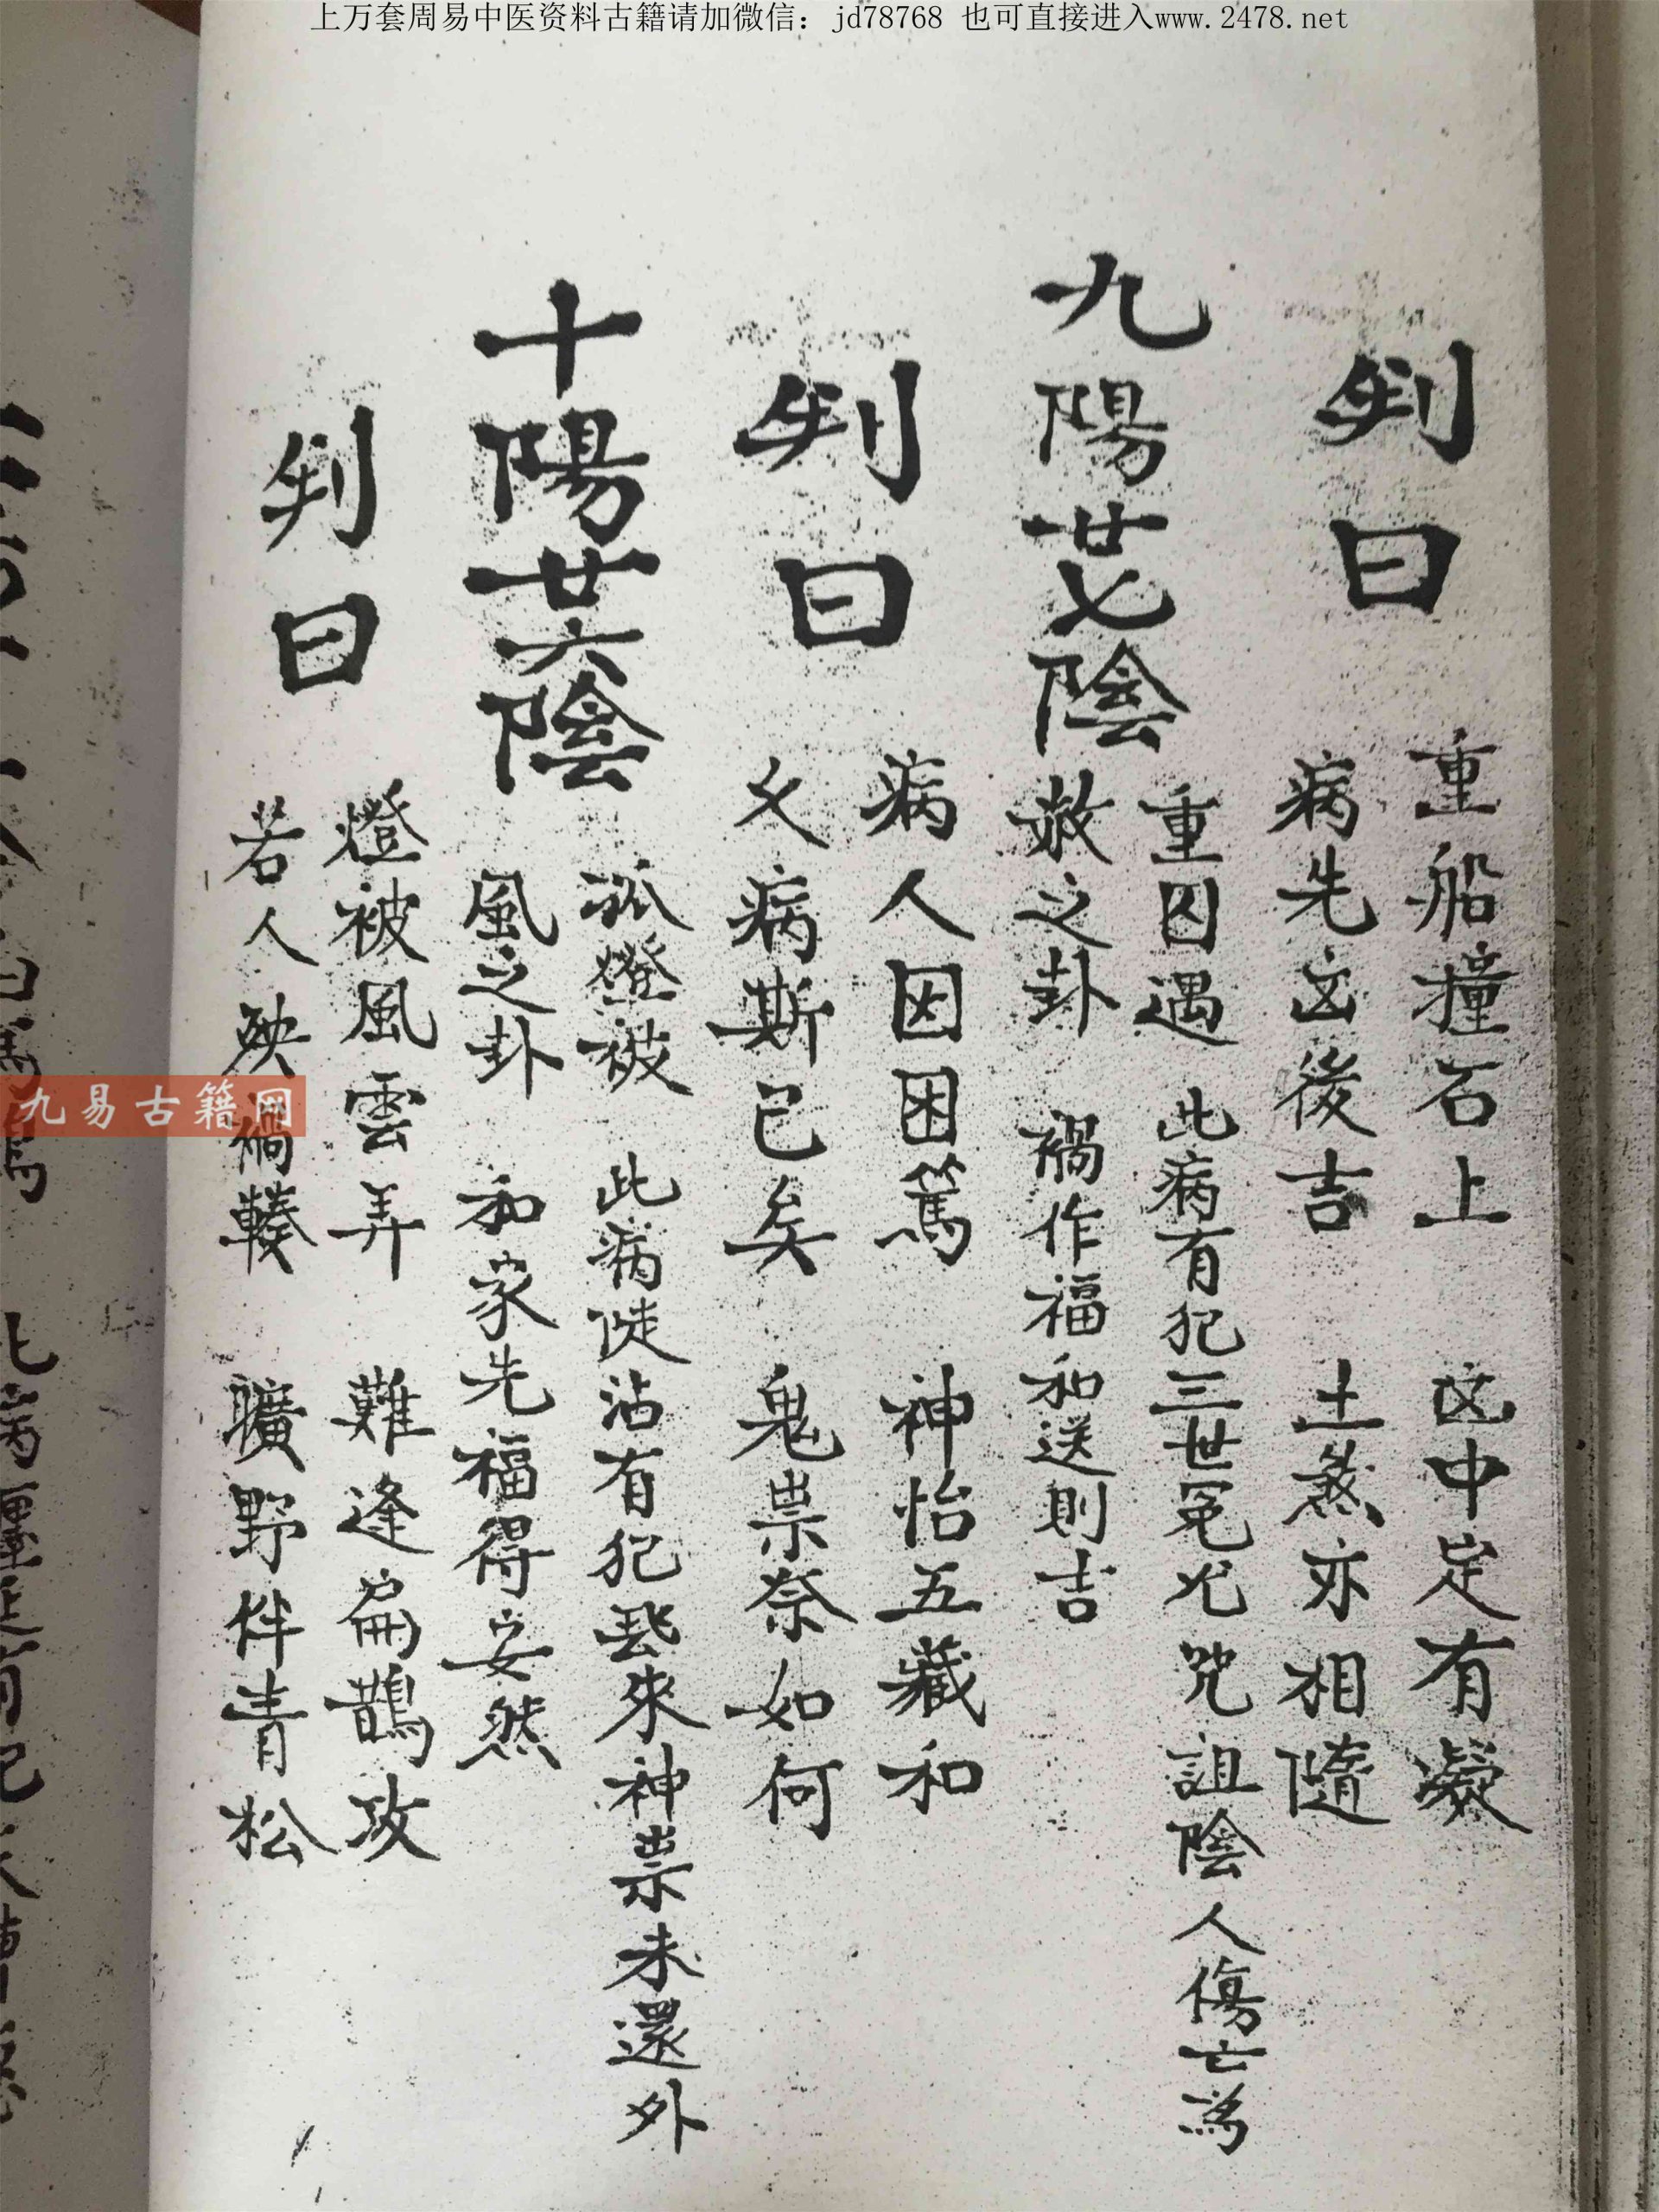 上万套周易中医资料古籍请加微信：jd78768 也可直接进入www.2478.net
判曰
重船撞石上 凶中定有凝
病先凶後吉 土煞亦相隨
九陽廿七陰
重囚遇 此病有犯三世冤尤咒詛陰人傷亡為
赦之卦 禍作福和送則吉
判曰
病人因困篤 神怡五藏和
父病斯已矣 鬼祟奈如何
十陽廿六陰
孤燈被 此病徒沾有犯 來神祟未還外
風之卦 和家先福得安然
判曰
燈被風雲弄 難逢扁鵲攻
若人殃禍輳 曠野伴青松
九易古籍网